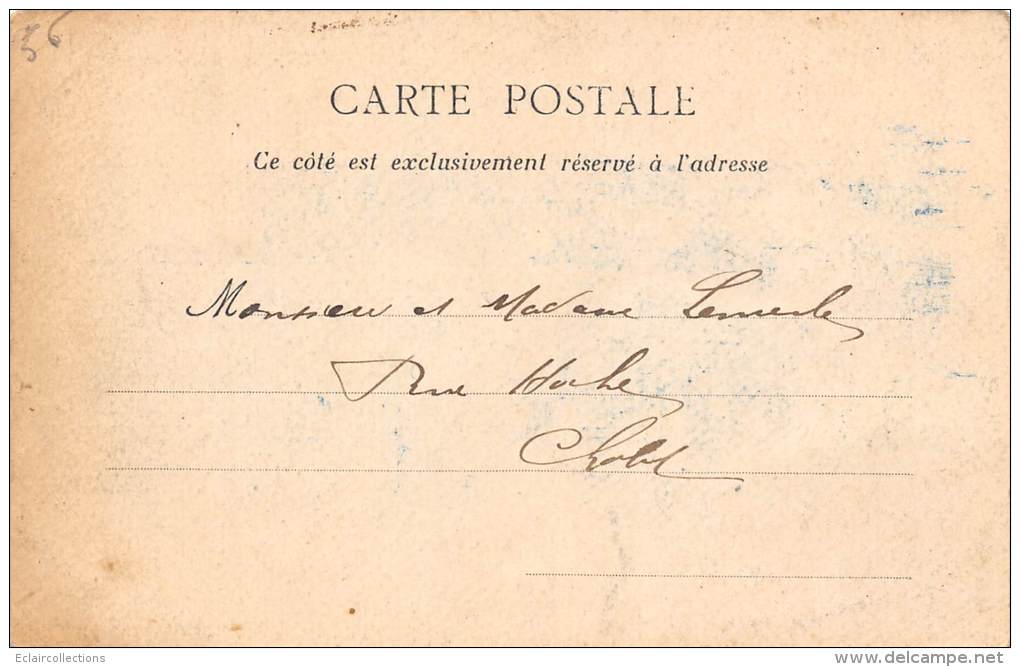 56
CARTE POSTALE
Ce côté est exclusivement réservé à l'adresse
Monsieur et Madame Lemerle
Rue Hoche
Cholet
Eclaircollections
www.delcampe.net